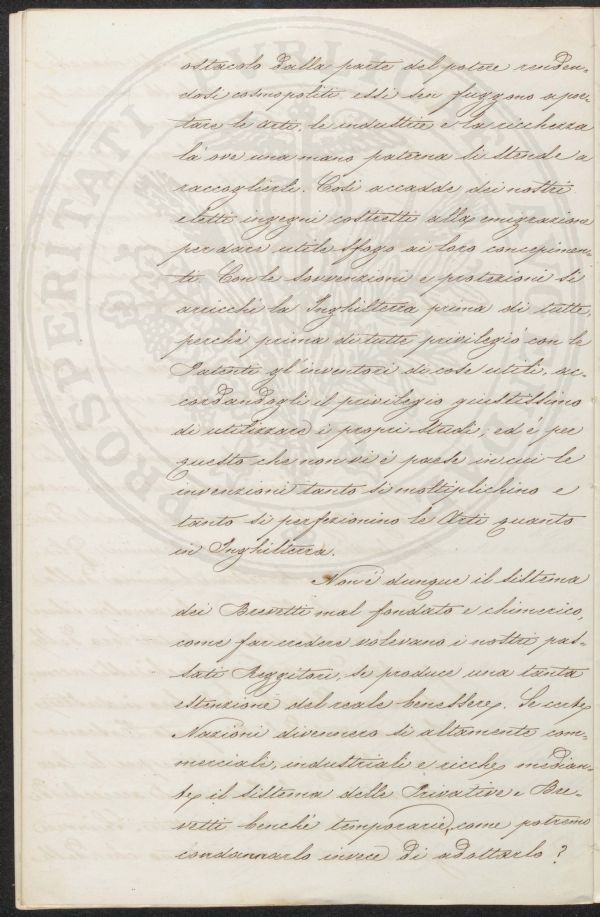 ostacolo dalla parte del potere renden-
dosi cosmopoliti essi sen fuggono a por-
tare le Arti, le industrie e la ricchezza
là ove una mano paterna si stende a
raccoglierle. Così accadde dei nostri
eletti ingegni costretti alla emigrazione
per dare utile sfogo ai loro concepimen-
ti. Con le sovvenzioni e protezioni si
arricchì la Inghilterra prima di tutte,
perché prima di tutte privilegiò con le
Patenti gl'inventori di cose utili, ac-
cordandogli il privilegio giustissimo
di utilizzare i propri studi; ed è per
questo che non vi è paese in cui le
invenzioni tanto si moltiplichino e
tanto si perfezionino le Arti quanto
in Inghilterra.
Non è dunque il sistema
dei Brevetti mal fondato e chimerico,
come far credere volevano i nostri pas-
sati Reggitori, se produce una tanta
estenzione del reale benessere. Se certe
Nazioni divennero sì altamente com-
merciali, industriali e ricche, median-
te il sistema delle Privative e Bre-
vetti benché temporarie, come potremo
condannarlo invece di adottarlo?
PROSPERITATI PVBLICAE